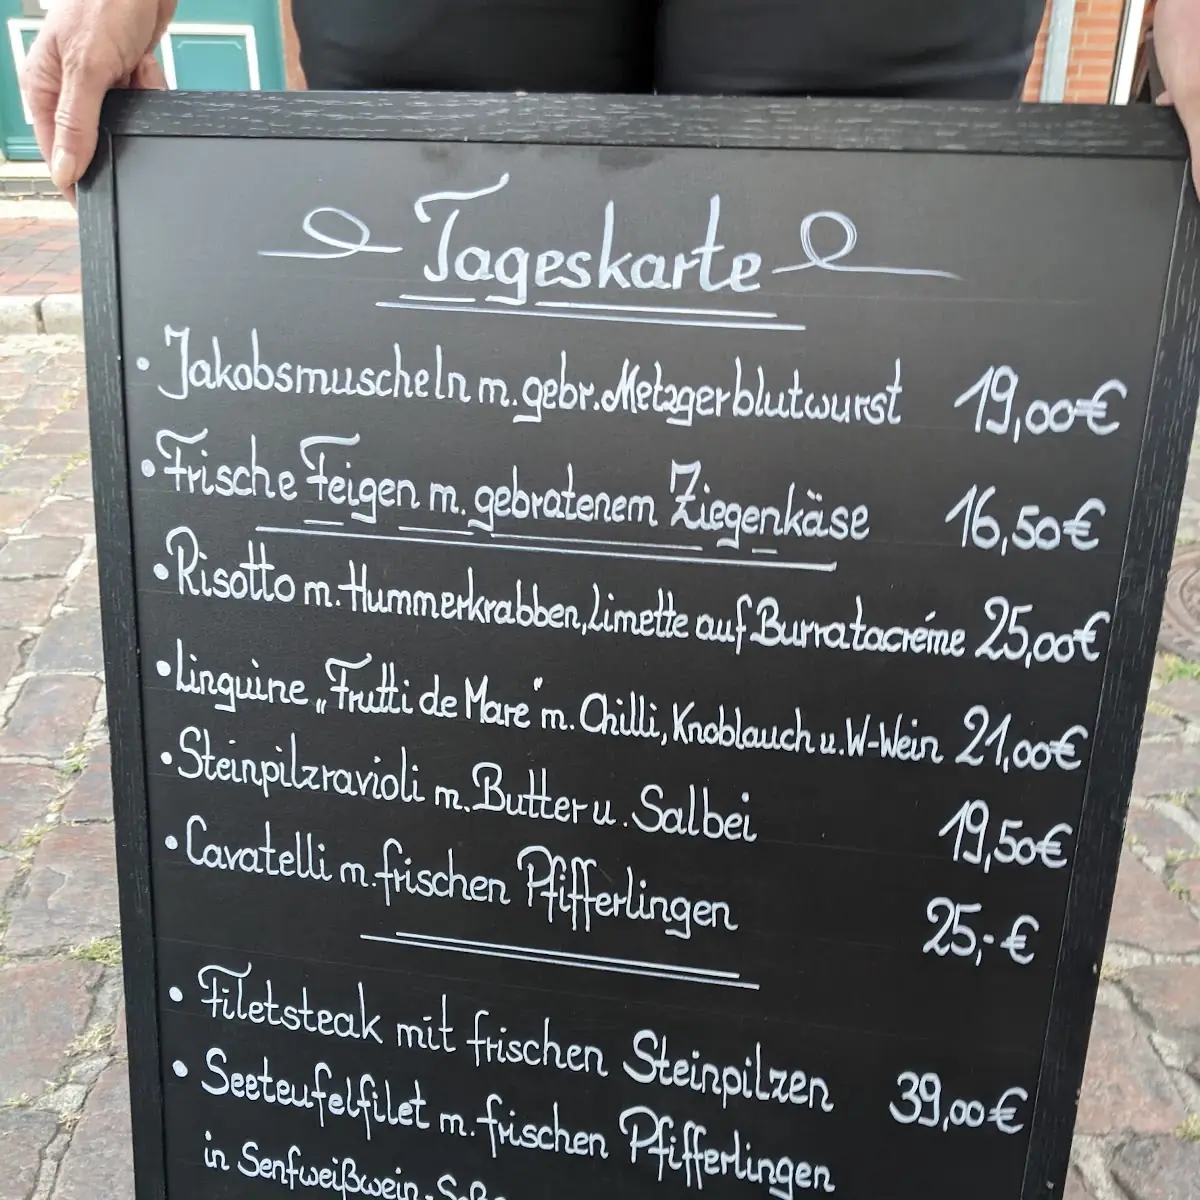 Tageskarte
• Jakobsmuscheln m. gebr. Metzgerblutwurst 19,00€
• Frische Feigen m. gebratenem Ziegenkäse 16,50€
• Risotto m. Hummerkrabben, Limette auf Burratacréme 25,00€
• Linguine „Frutti de Mare" m. Chilli, Knoblauch u. W-Wein 21,00€
• Steinpilzravioli m. Butter u. Salbei 19,50€
• Cavatelli m. frischen Pfifferlingen 25,-€
• Filetsteak mit frischen Steinpilzen 39,00€
• Seeteufelfilet m. frischen Pfifferlingen
in Senfweißwein-